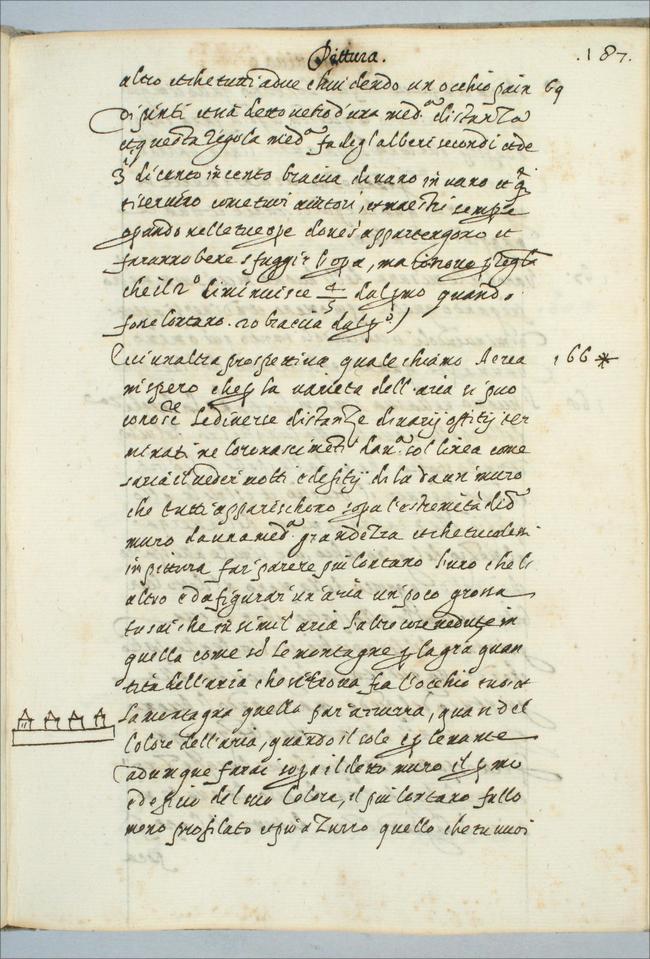 Pittura. .187.
altro et che tutti a due chiudendo un occhio pain 69
dipinti et in detto vetro d'una med.a distanza
et questa regola med.a fa degl'alberi secondi et de
3.i di cento in cento braccia di vano in vano et
ti servirno come tuoi autori, et maestri sempre
oprando nelle tue ope dove s'appartengono et
faranno bene sfuggir l'opa, ma io trovo p regla
che il 2.o diminuisce 4/5 dal pmo quando
fosse lontano .20 braccia dal p.o /
Evi un altra prospettiva quale chiamo Aerea 166 *
mispero che p la varietà dell'aria si puo
conosce le diverse distanze di varij offitij ter
minati ne loro nascimeti da un.a sol linea come
saria il veder molti edefitij di la da un muro
che tutti apparischono sopa l'estremità di d.o
muro d'una med.a grandezza et che tu volessi
in pittura far parere piu lontano l'uno che l
altro è da figurar un aria un poco grossa
tu sai che in simil'aria l'altre cose vedute in
quella come so le montagne p la gra quan
tità dell'aria che si trova fra l'occhio tuo et
la montagna quella par azzurra, quasi del
Colore dell'aria, quando il sole e p levante
adunque farai sopa il detto muro il pmo
edefitio del suo Colore, il piu lontano fallo
meno profilato et piu azurro quello che tu vuoi